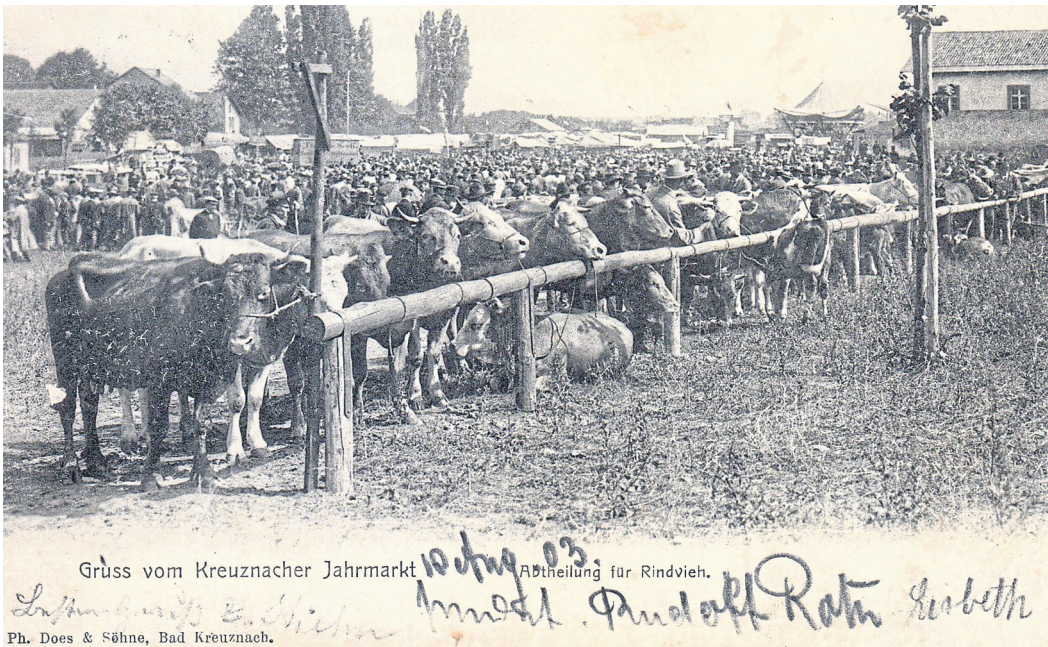 Grüss vom Kreuznacher Jahrmarkt 10 Aug 03. Abtheilung für Rindvieh.
sendet Rudolf Roth Lisbeth
Ph. Does & Söhne, Bad Kreuznach.